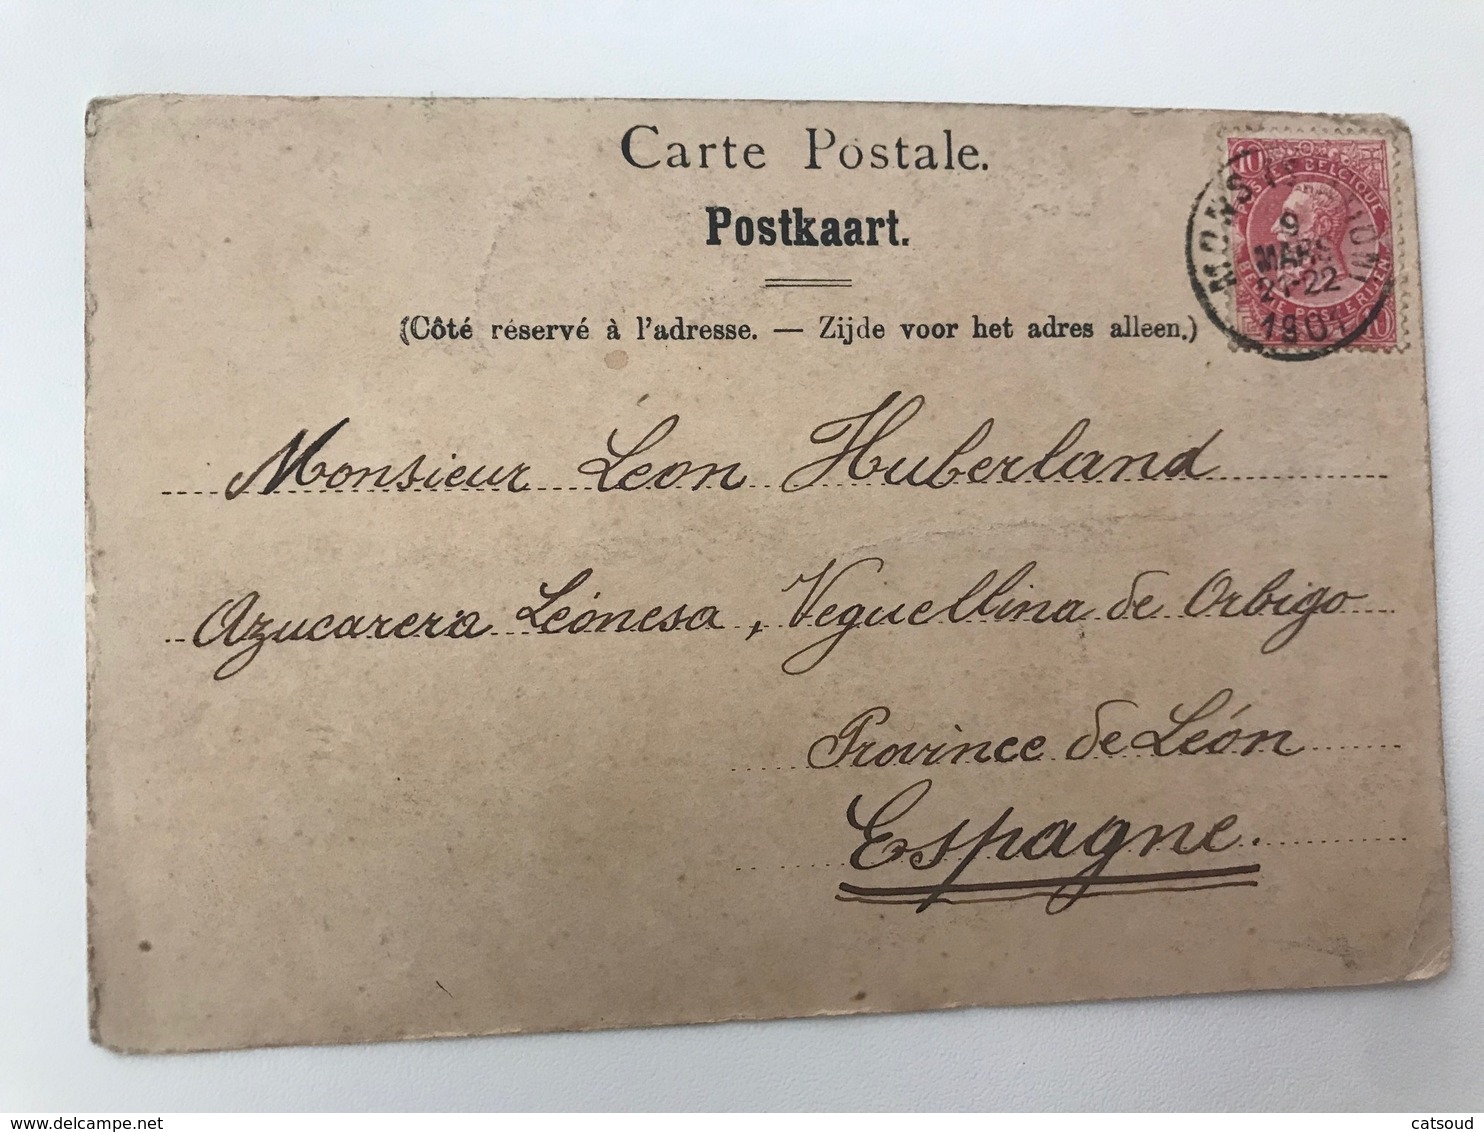 Carte Postale.
Postkaart.
(Côté réservé à l'adresse. — Zijde voor het adres alleen.)
10 POSTES BELGIQUE
MONS (STATION)
9
MARS
21-22
1901
10
Monsieur Leon Huberland
Azucarera Léonesa, Veguellina de Orbigo
Province de León
Espagne.
delcampe.net
catsoud